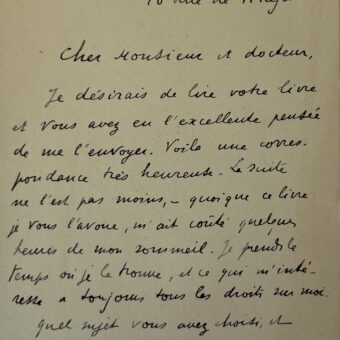 rue de
Cher Monsieur et docteur,
Je désirais de lire votre livre
et vous avez eu l'excellente pensée
de me l'envoyer. Voilà une corres-
pondance très heureuse. La suite
ne l'est pas moins, – quoique ce livre
je vous l'avoue, m'ait coûté quelques
heures de mon sommeil. Je prends le
temps où je le trouve, et ce qui m'inté-
resse a toujours tous les droits sur moi.
Quel sujet vous avez choisi, et